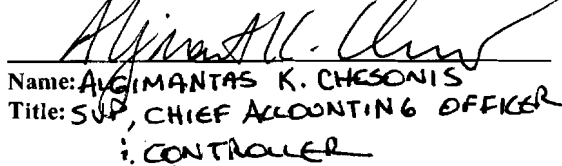 Name: ALGIMANTAS K. CHESONIS
Title: SVP, CHIEF ACCOUNTING OFFICER
& CONTROLLER